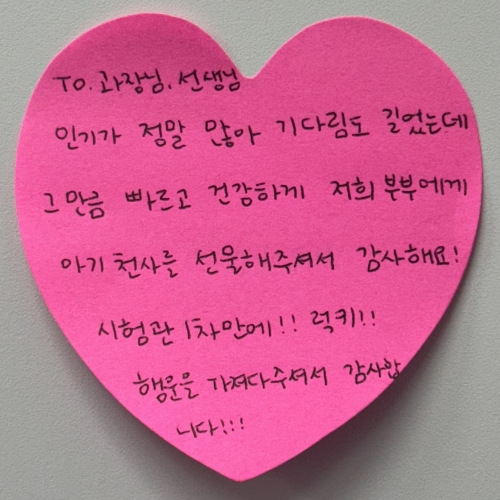 TO. 과장님, 선생님
인기가 정말 많아 기다림도 길었는데
그만큼 빠르고 건강하게 저희 부부에게
아기 천사를 선물해주셔서 감사해요!
시험관 1차만에!! 럭키!!
행운을 가져다주셔서 감사합
니다!!!